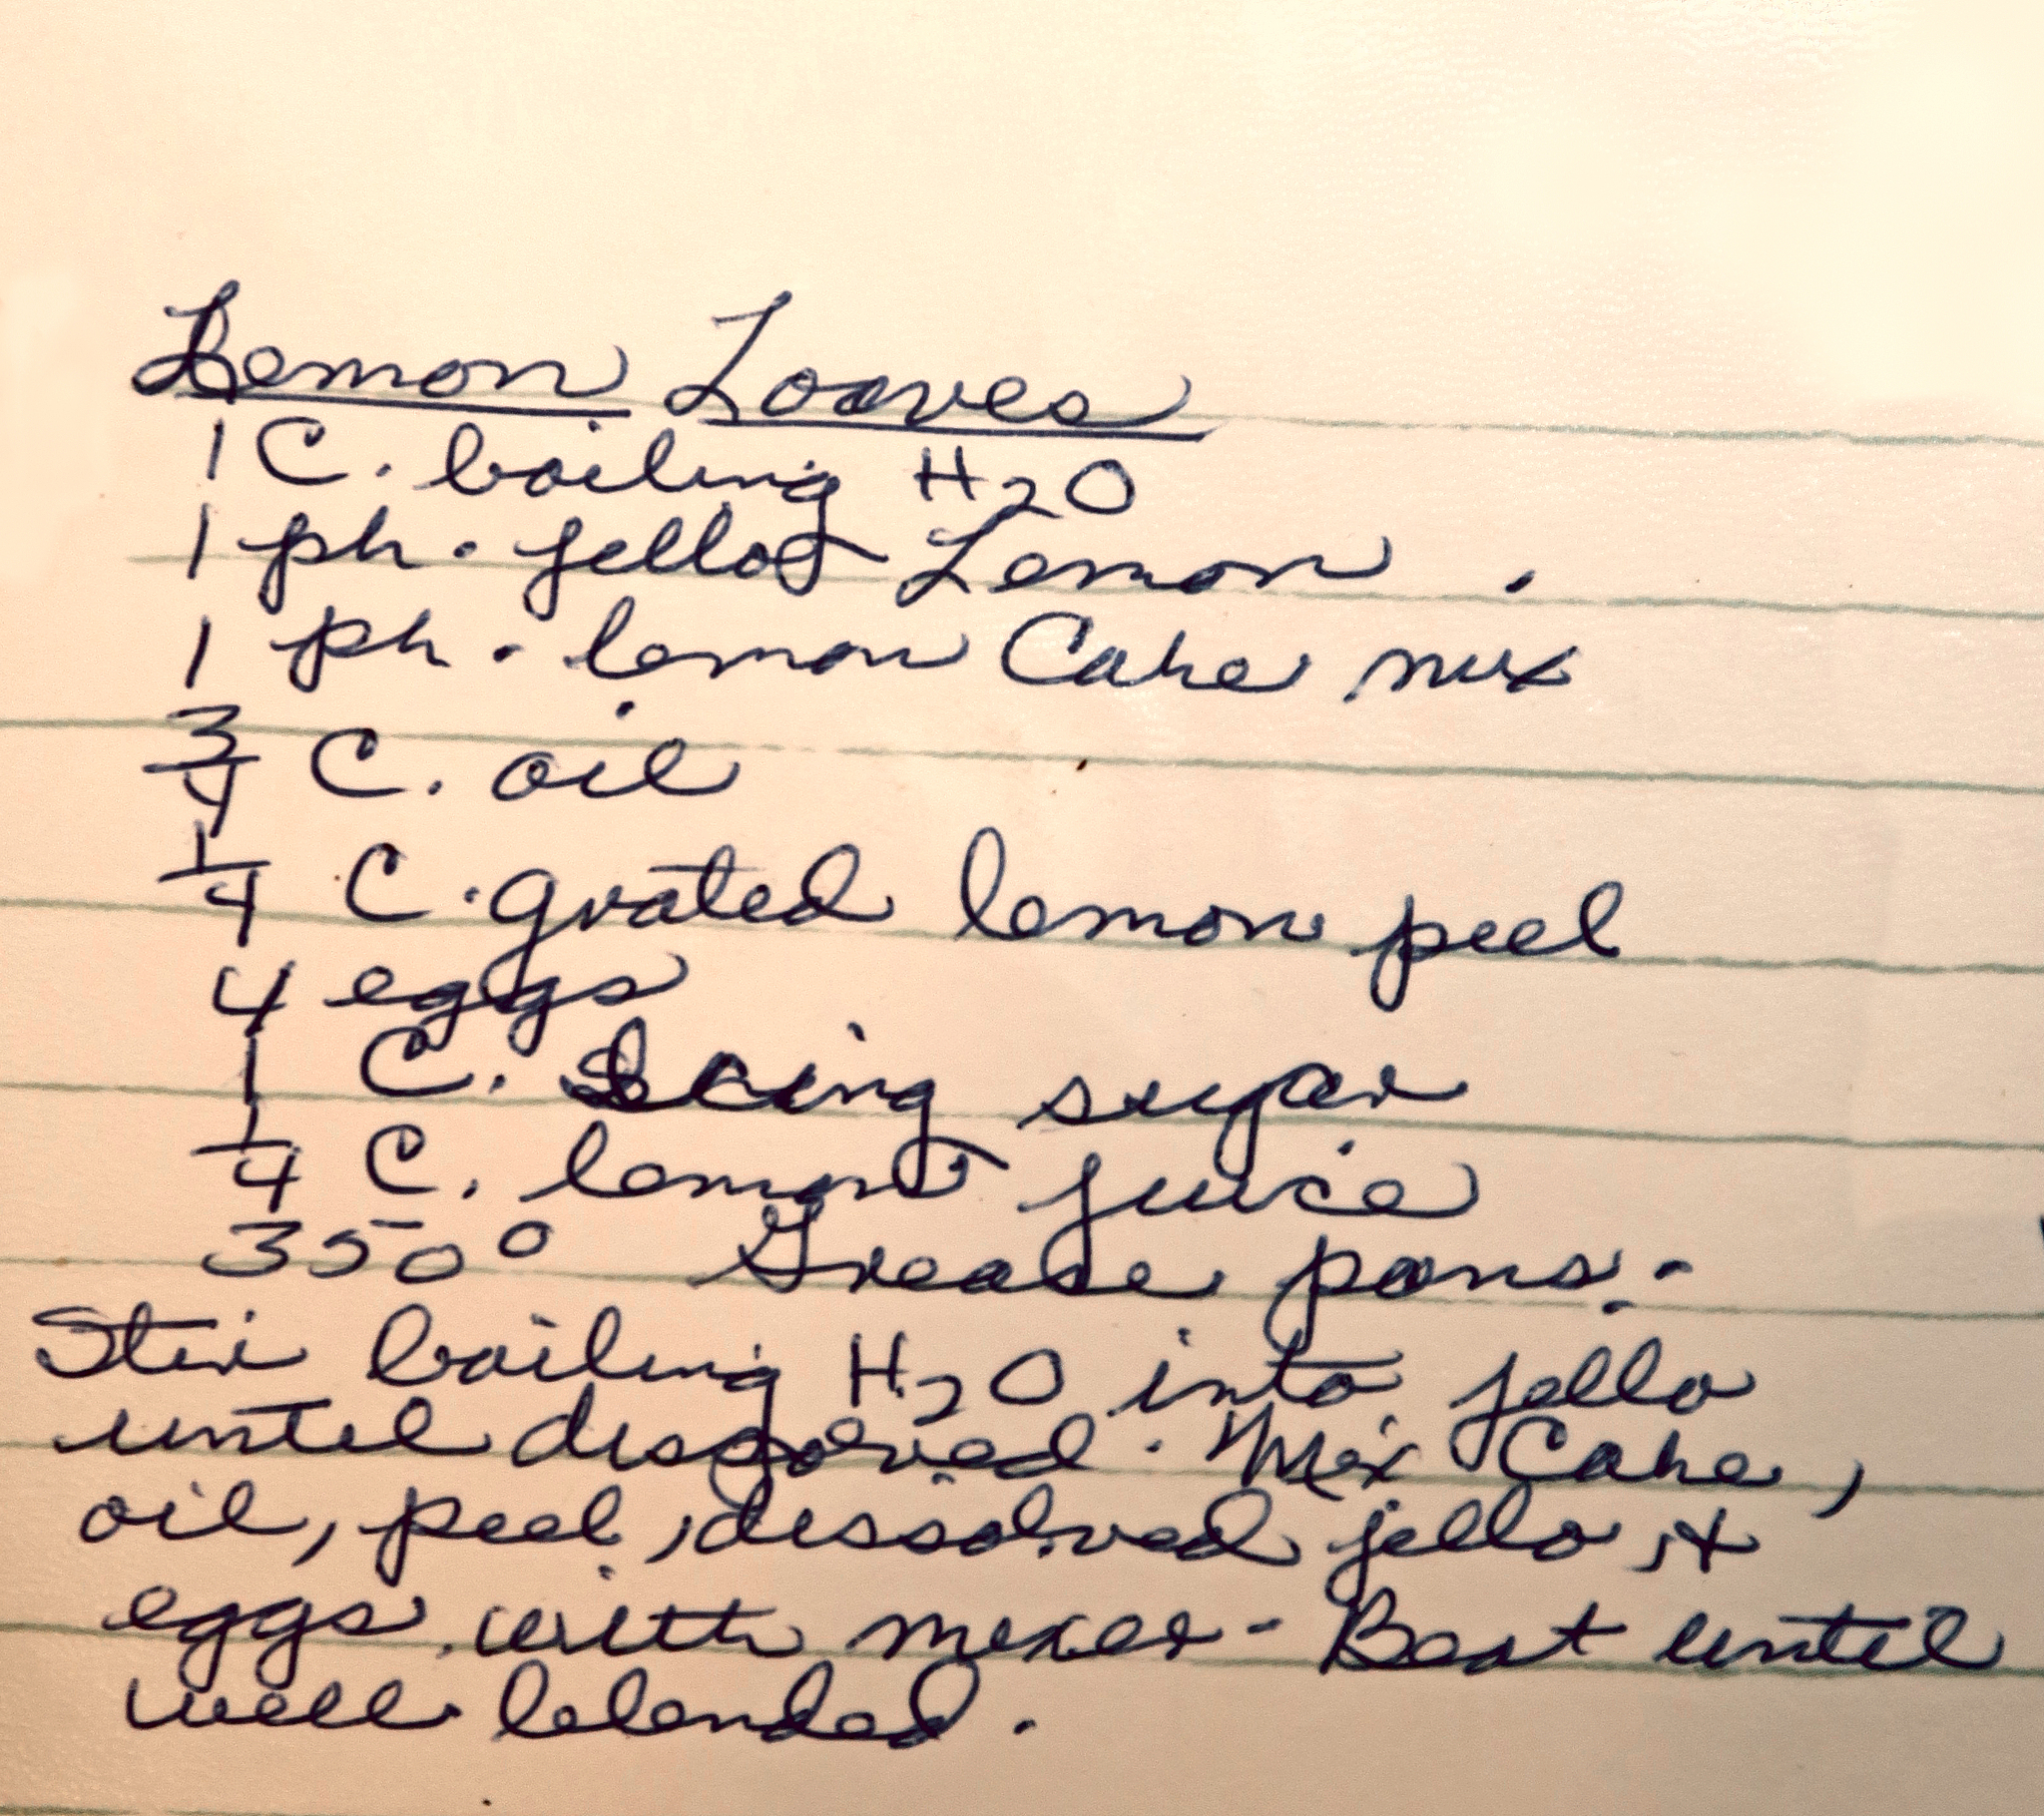 Lemon Loaves
1 C. boiling H2O
1 pk. jello Lemon.
1 pk. lemon Cake mix
3/4 C. oil
1/4 C. grated lemon peel
4 eggs
1 C. Icing sugar
1/4 C. lemon juice
350° Grease pans.
Stir boiling H2O into jello
until dissolved. Mix Cake,
oil, peel, dissolved jello, +
eggs with mixer - Beat until
well blended.